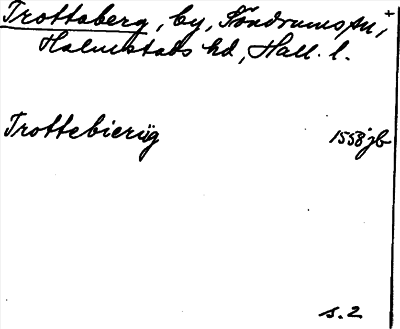 Trottaberg, by, Söndrums sn, +
Halmstads hd, Hall. l.
Trottebierüg 1558 jb
s. 2